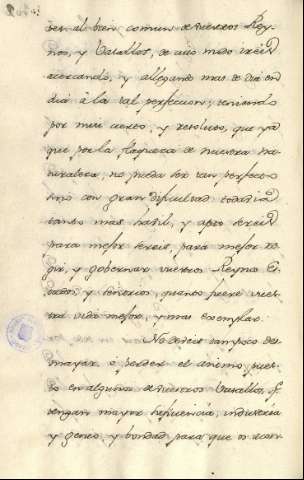 ves al bien comun de vuestros Rey-
nos, y Vasallos, de este modo ireis
acercando, y allegando mas de dia en
dia à la tal perfeccion; teniendo
por mui cierto, y resoluto, que ya
que por la flaqueza de nuestra na-
turaleza, no pueda ser tan perfecto
sino con gran dificultad todavia
tanto mas habil, y apto sereis
para mejor servir, para mejor re-
gir, y gobernar vuestros Reynos Es-
tados, y Señorios, quanto fuere vues-
tra vida mejor, y mas exemplar.
No debeis tampoco des-
mayar, o perder el animo, pues-
to en algunos de vuestros Vasallos, q.
tengan mayor suficiencia, industria
y genio, y bondad para que os acon-